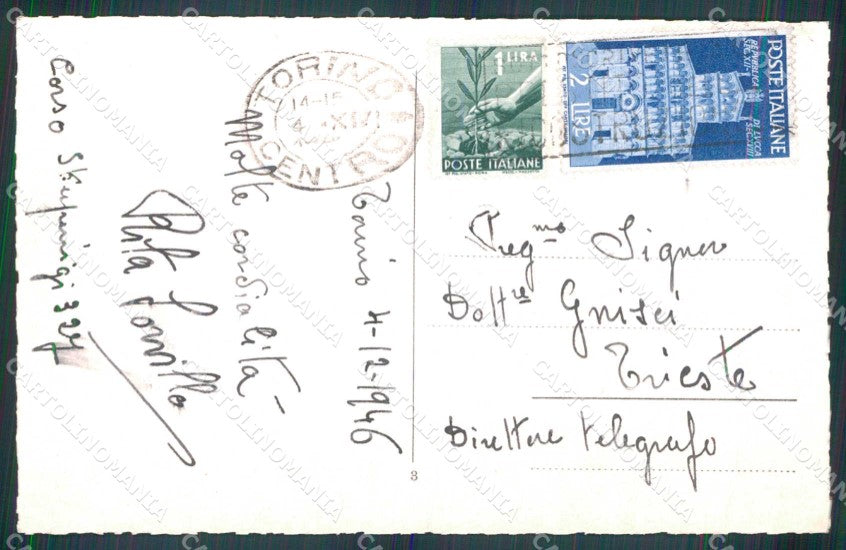 Torino 4-12-1946
Molte cordialità
Rita
Corso Stupinigi 327
Preg.mo Signor
Dott.re Gnisci
Trieste
Direttore telegrafo
TORINO
14-15
4 XII
CENTRO
1 LIRA
POSTE ITALIANE
POSTE ITALIANE
REPUBBLICA DI LUCCA
SEC.XII-
SEC.XVIII
2 LIRE
3
CARTOLINOMANIA